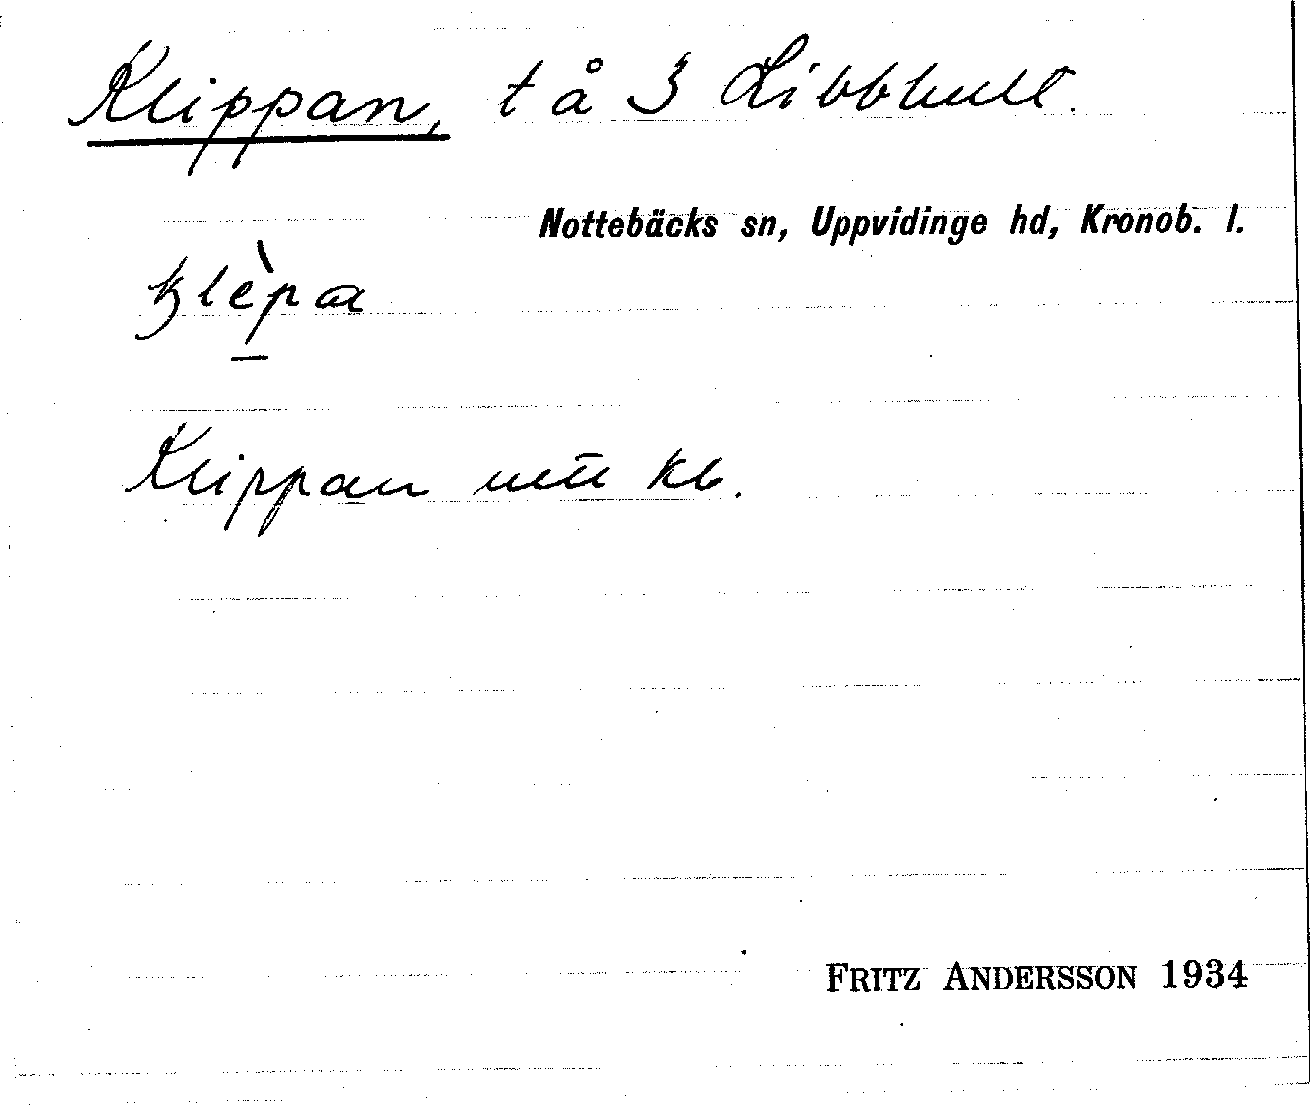 Klippan, t å 3 Libbhult.
Nottebäcks sn, Uppvidinge hd, Kronob. l.
klèpa
Klippan kb.
FRITZ ANDERSSON 1934